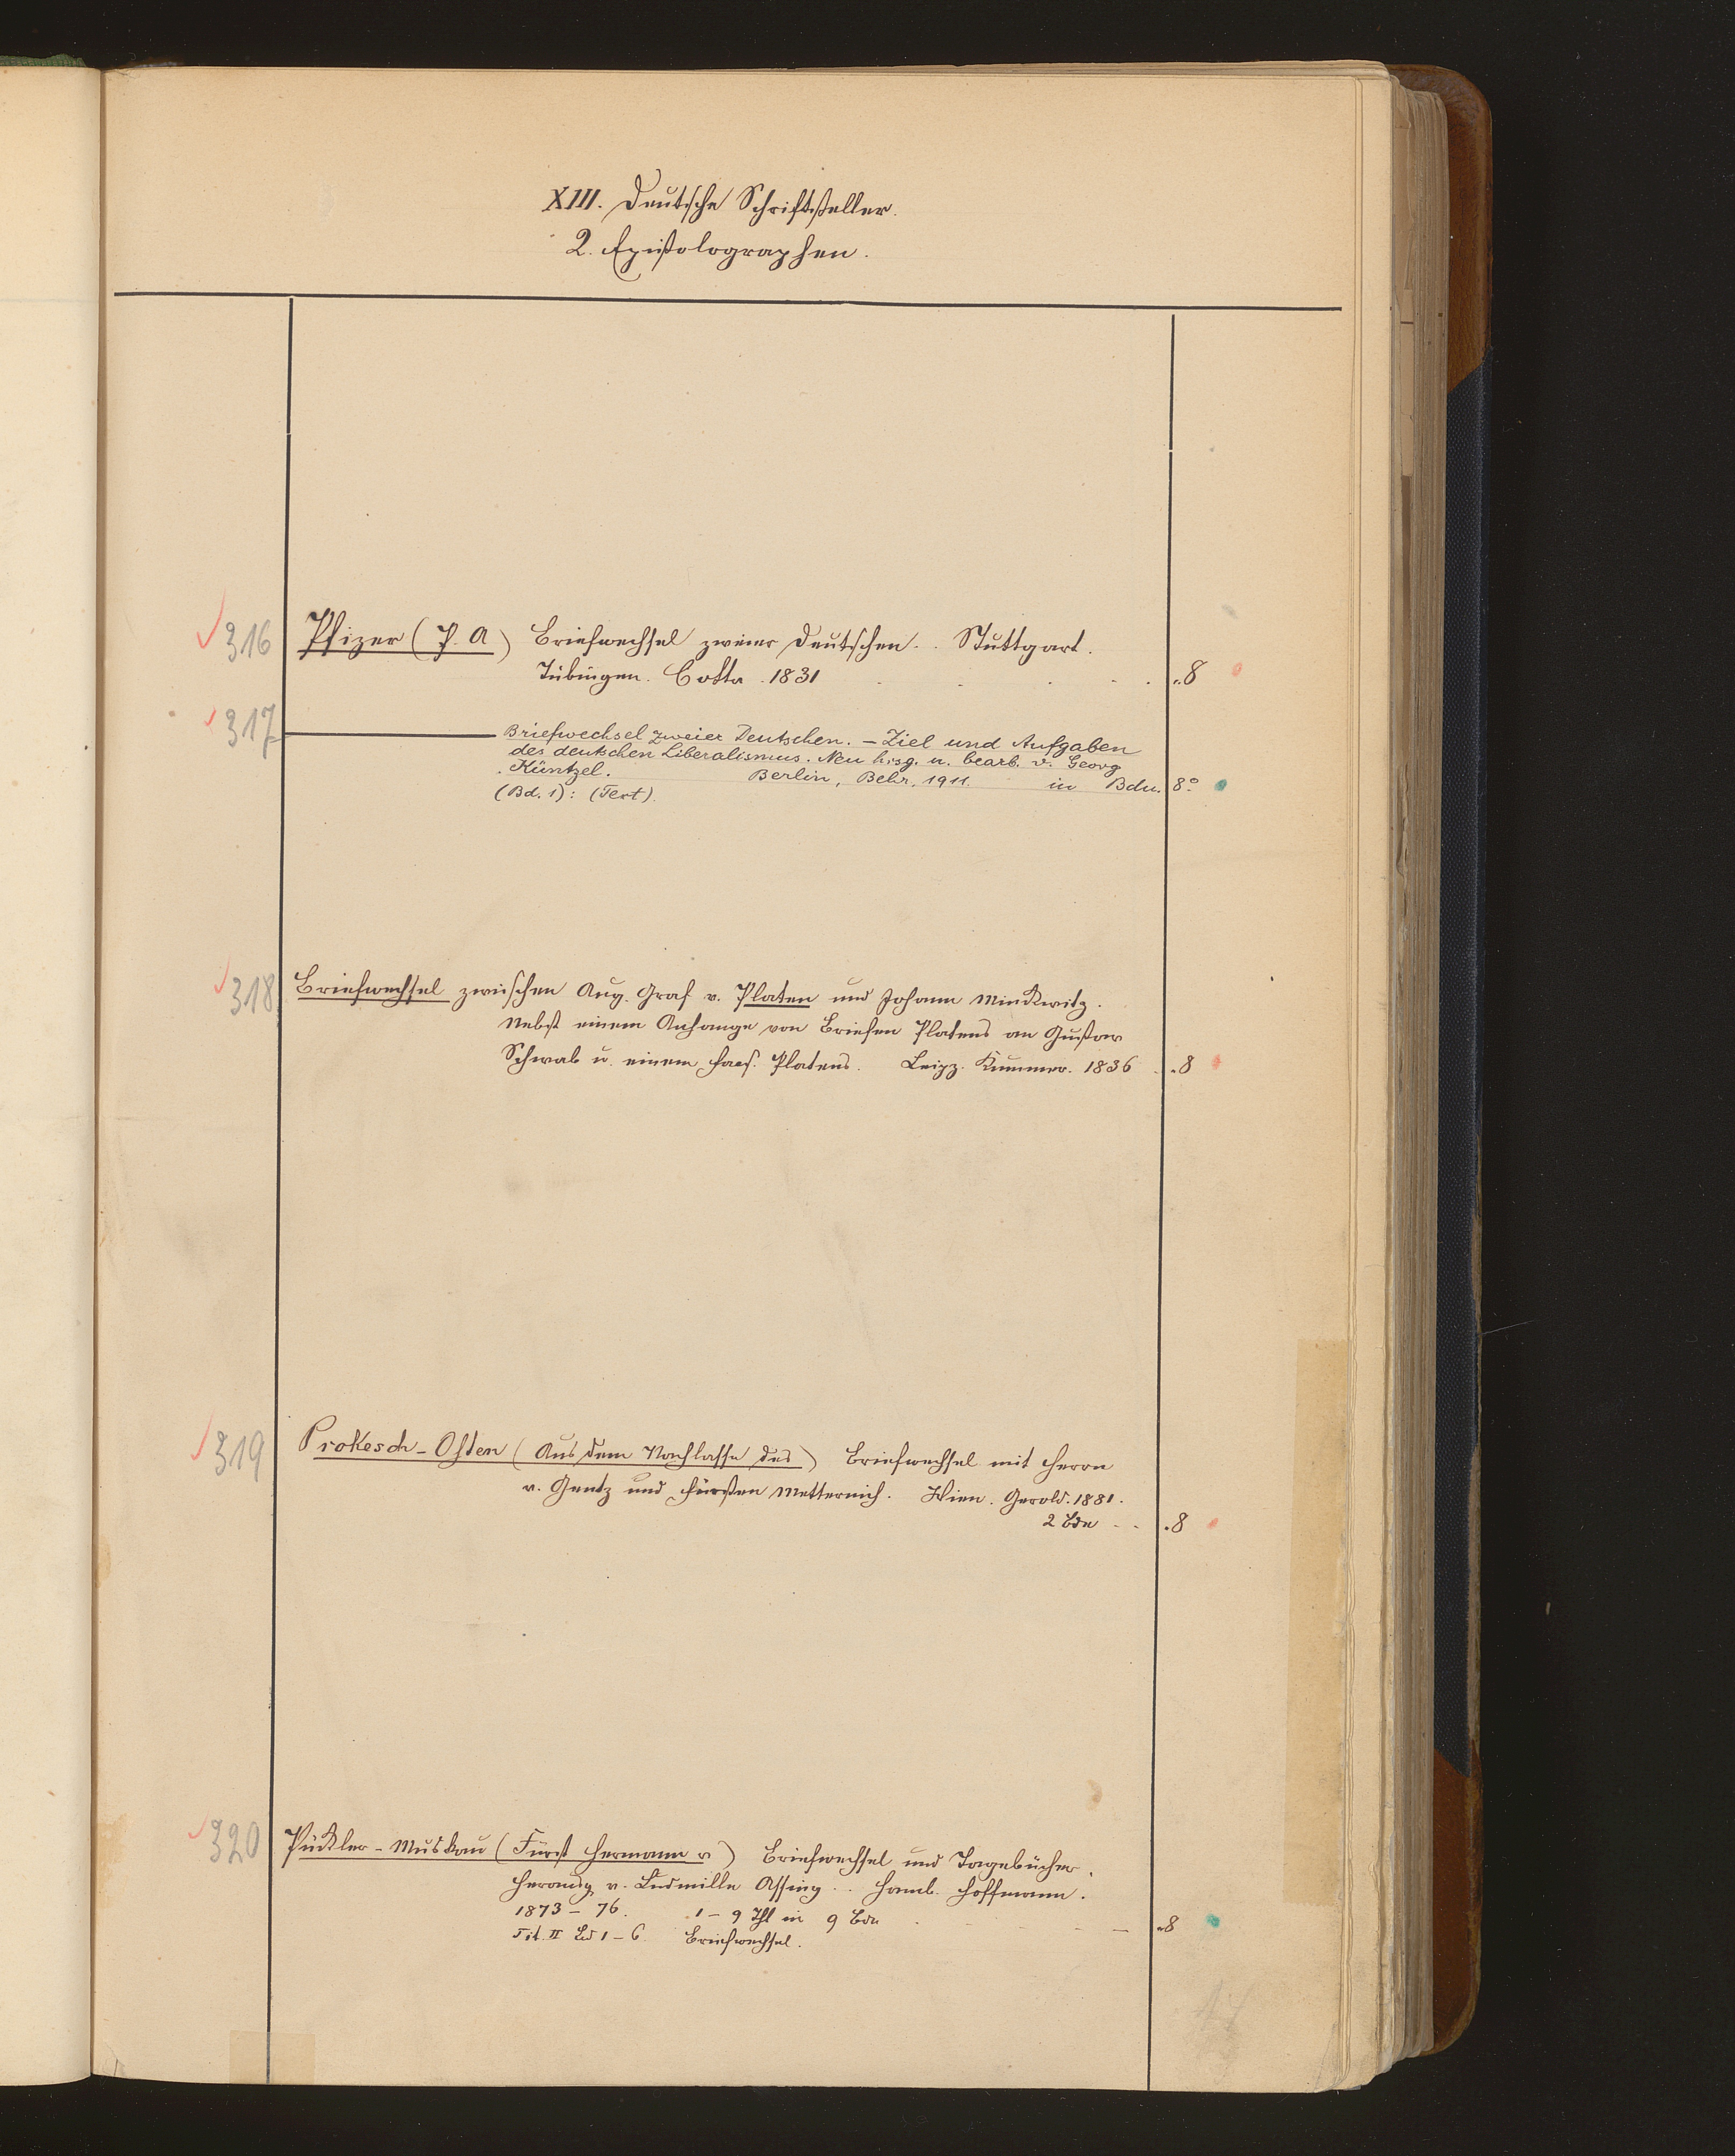 XIII. Deutsche Schriftsteller.
2. Epistolographen.
316 Pfizer (P. A) Briefwechsel zweier Deutschen. . Stuttgart.
Tübingen. Cotta. 1831 . . . . . 8
317 ——— Briefwechsel zweier Deutschen. – Ziel und Aufgaben
des deutschen Liberalismus. Neu hrsg. u. bearb. v. Georg
Küntzel. Berlin, Behr, 1911. in Bdn. 8°
(Bd. 1): (Text).
318 Briefwechsel zwischen Aug. Graf v. Platen und Johann Minckwitz.
Nebst einem Anhange von Briefen Platens an Gustav
Schwab u. einem Facs. Platens. Leipz. Kummer. 1836 . . 8
319 Prokesch-Osten (Aus dem Nachlasse des) Briefwechsel mit Herrn
v. Gentz und Fürsten Metternich. Wien. Gerold. 1881.
2 Bde . . . 8
320 Pückler-Muskau (Fürst Hermann v) Briefwechsel und Tagebücher.
Herausg. v. Ludmilla Assing . . Hamb. Hoffmann.
1873–76. 1–9 Thl in 9 Bdn – . 8
Tit. II Bd 1–6 Briefwechsel.